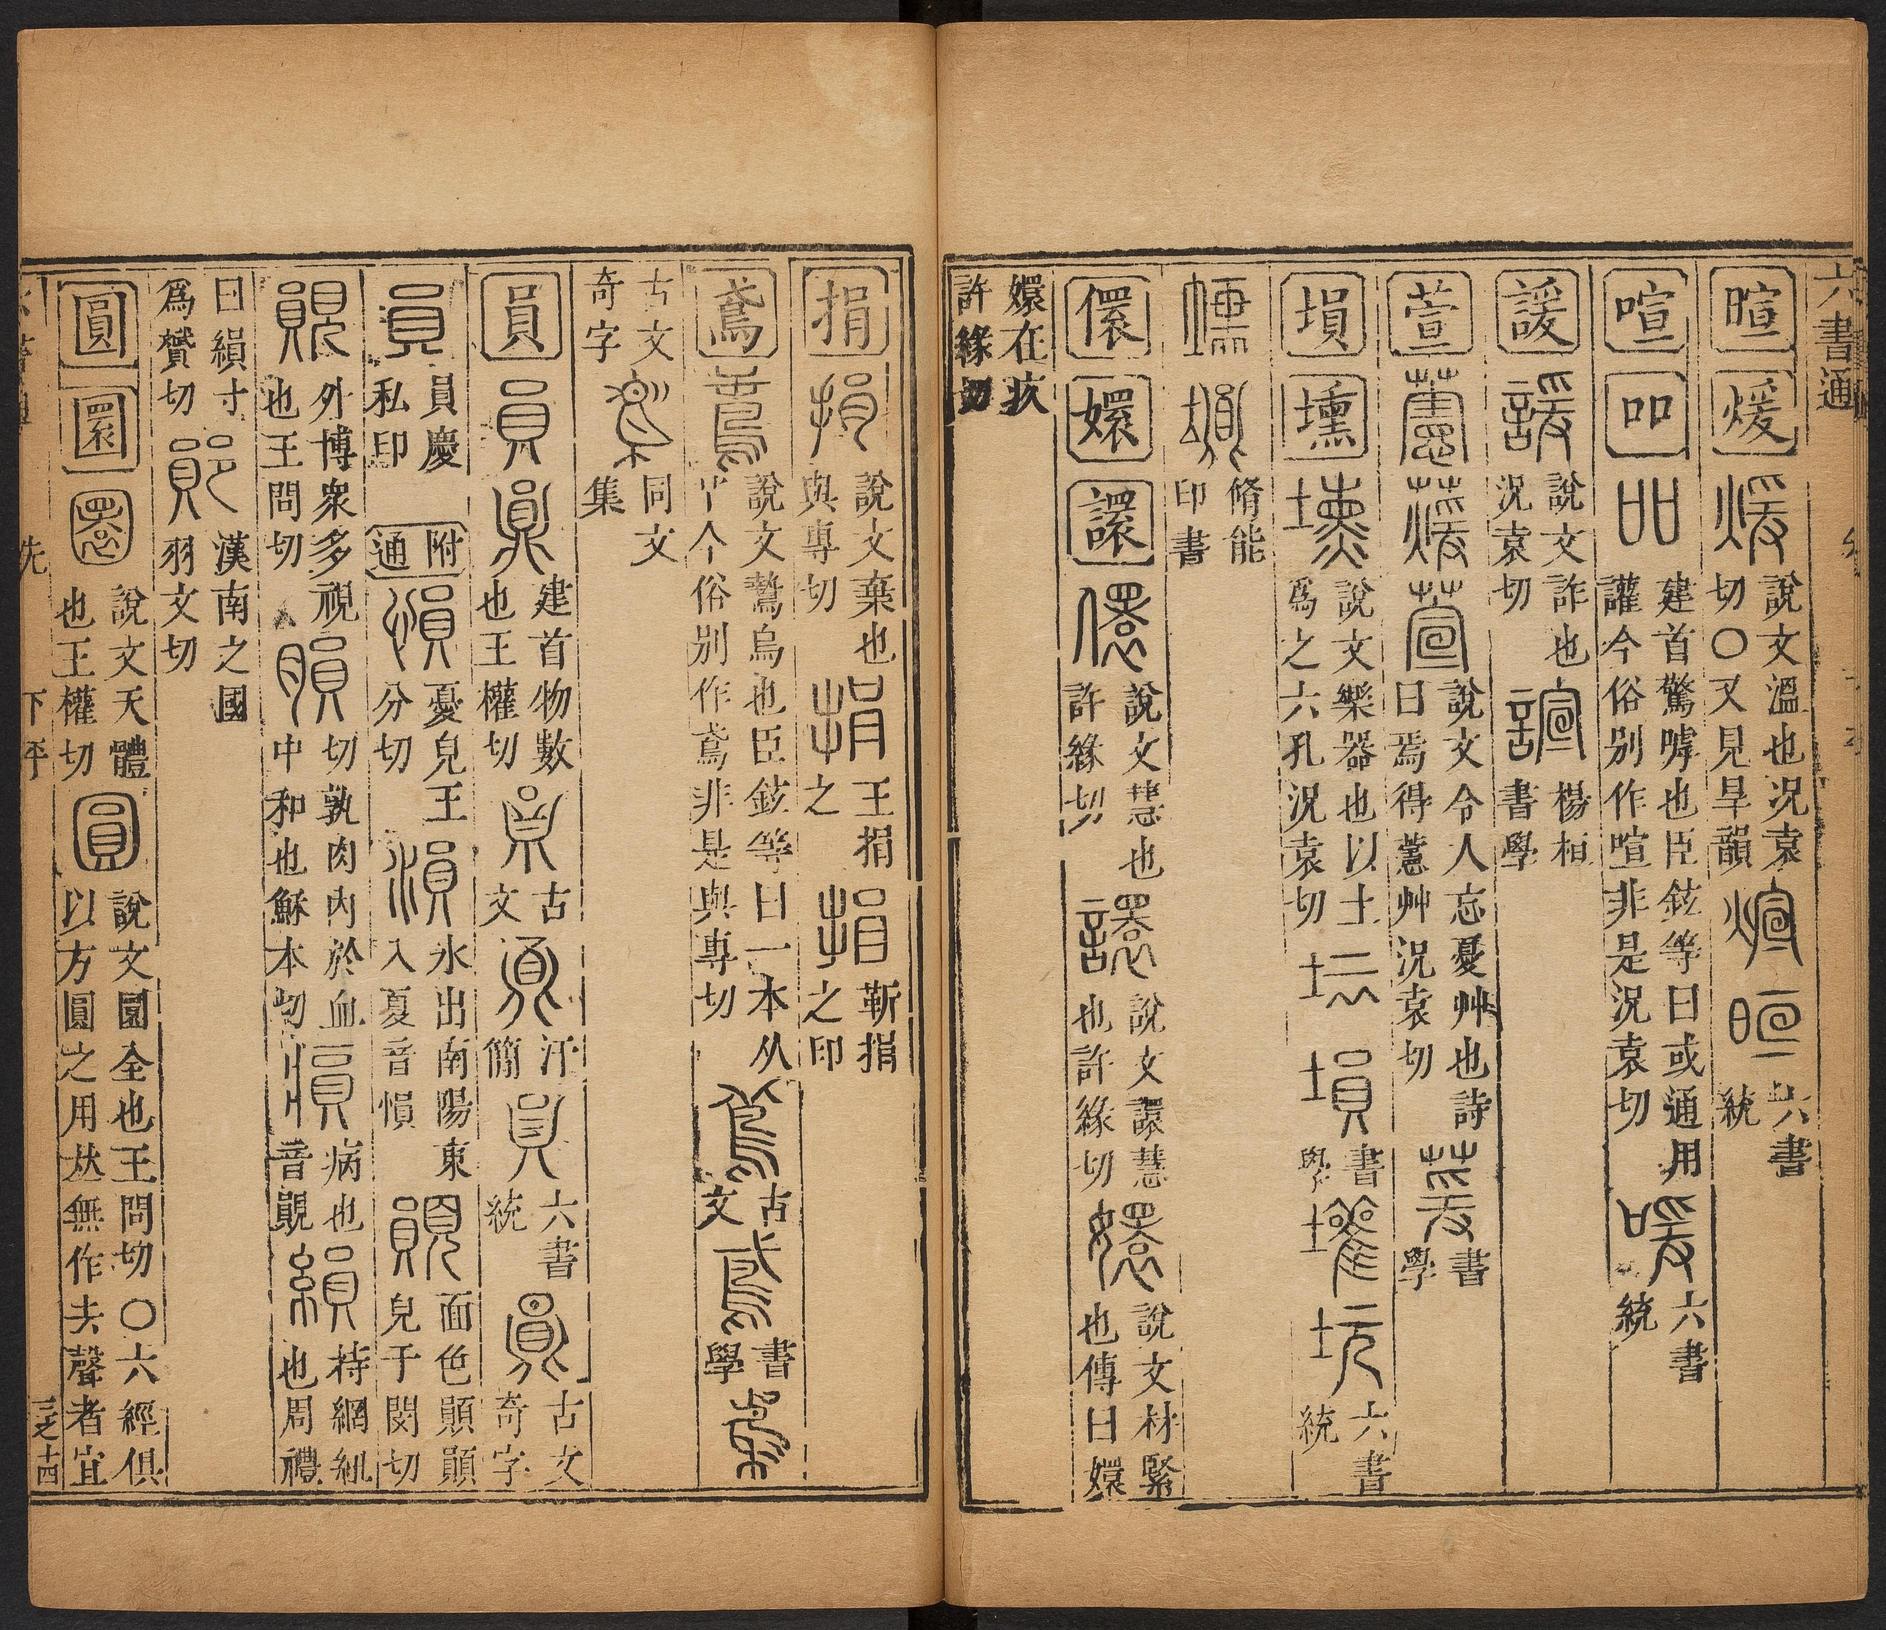 六書通
暄 煖 說文溫也況袁切〇又見旱韻 六書統
喧 吅 建首驚嘑也臣鉉等曰或通用讙今俗別作喧非是況袁切 六書統
諼 說文詐也況袁切 楊桓書學
萱 說文令人忘憂艸也詩曰焉得藼艸況袁切 書學
塤 壎 說文樂器也以土爲之六孔況袁切 書學 六書統
脩能印書
儇 嬛 譞 說文慧也許緣切 說文譞慧也許緣切 說文材緊也傳曰嬛
嬛在疚許緣切
捐 說文棄也與專切 王捐之 靳捐之印
鳶 說文鷙鳥也臣鉉等曰一本从 今俗別作鳶非是與專切 古文 書學
古文奇字 同文集
員 建首物數也王權切 古文 汗簡 六書統 古文奇字
員慶私印 附通 憂皃王分切 水出南陽東入夏音愪 面色顚顚皃于閔切
外博衆多視也王問切 切孰肉內於血中和也穌本切 病也音覞 持綱紐也周禮
曰縜寸 漢南之國 爲贇切 羽文切
圓 圜 說文天體也王權切 說文圜全也王問切〇六經俱以方圓之用𠀤無作去聲者宜
先 下平
三之十四